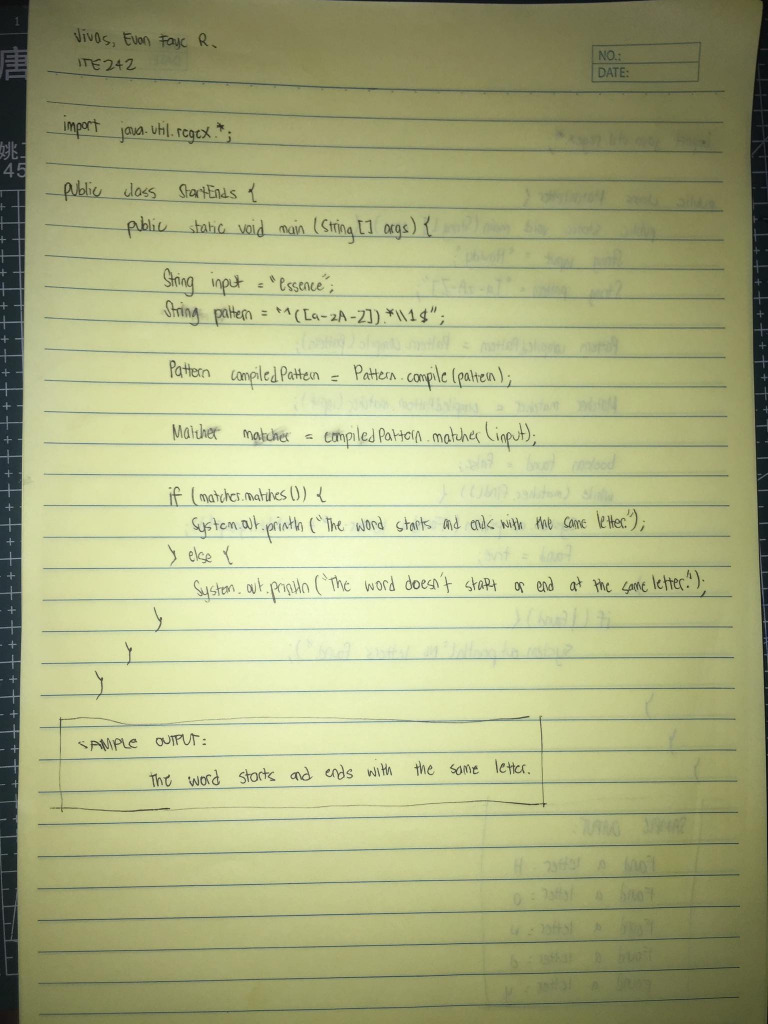 Vivas, Evan Faye R.
ITE242
NO.:
DATE:
import java.util.regex.*;
public class StartEnds {
public static void main (String[] args) {
String input = "Essence";
String pattern = "^([a-zA-Z]).*\\1$";
Pattern compiledPattern = Pattern.compile(pattern);
Matcher matcher = compiledPattern.matcher(input);
if (matcher.matches()) {
System.out.println ("The word starts and ends with the same letter.");
} else {
System.out.println ("The word doesn't start or end at the same letter.");
}
}
}
SAMPLE OUTPUT:
The word starts and ends with the same letter.
唐
姚
45